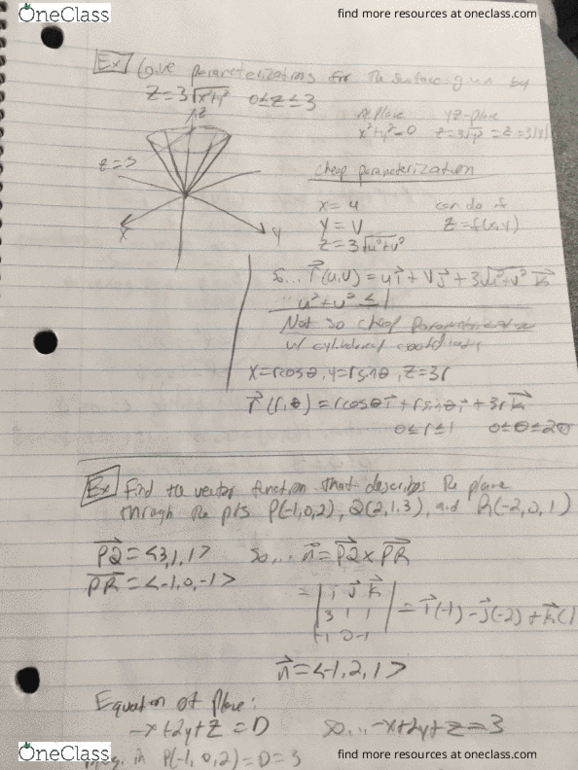 OneClass
find more resources at oneclass.com
Ex Give parameterizations for the surface given by
z=3√x²+y² 0≤z≤3
xy plane yz-plane
x²+y²=0 z=3√y² = z=3|y|
z=3
z
x
y
cheap parameterization
x=u can do if
y=v z=f(x,y)
z=3√u²+v²
So... r(u,v)=ui+vj+3√u²+v² k
u²+v²≤1
Not so cheap parameterization
w/ cylindrical coordinates
x=rcosθ, y=rsinθ, z=3r
r(r,θ)=rcosθi+rsinθj+3rk
0≤r≤1 0≤θ≤2π
Ex Find the vector function that describes the plane
through the pts P(-1,0,2), Q(2,1,3), and R(-2,0,1)
PQ=<3,1,1> So... n=PQxPR
PR=<-1,0,-1>
= | i j k
3 1 1
-1 0 -1 | = i(-1)-j(-2)+k(1
n=<-1,2,1>
Equation of Plane:
-x+2y+z=D So... -x+2y+z=3
in P(-1,0,2)=D=3
OneClass
find more resources at oneclass.com